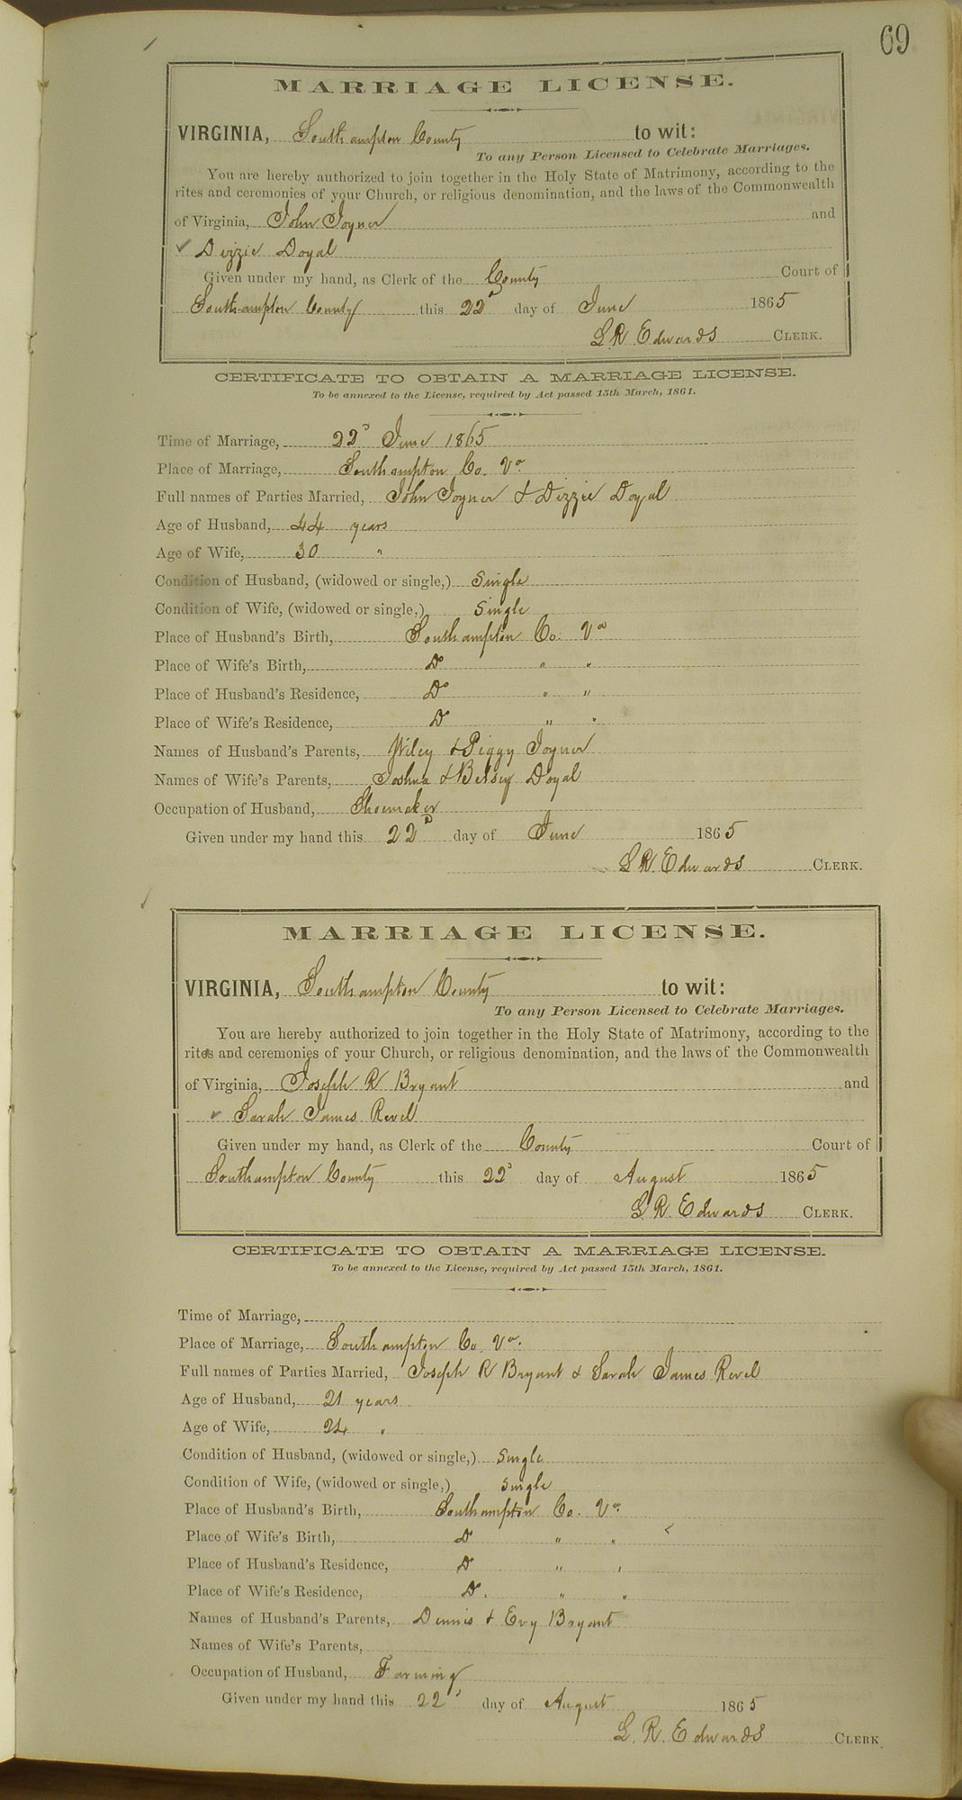 69
MARRIAGE LICENSE.
VIRGINIA, Southampton County to wit:
To any Person Licensed to Celebrate Marriages.
You are hereby authorized to join together in the Holy State of Matrimony, according to the
rites and ceremonies of your Church, or religious denomination, and the laws of the Commonwealth
of Virginia, John Joyner and
Dizzie Doyal
Given under my hand, as Clerk of the County Court of
Southampton County this 22d day of June 1865
L R. Edwards CLERK.
CERTIFICATE TO OBTAIN A MARRIAGE LICENSE.
To be annexed to the License, required by Act passed 15th March, 1861.
Time of Marriage, 22d June 1865
Place of Marriage, Southampton Co. Va.
Full names of Parties Married, John Joyner & Dizzie Doyal
Age of Husband, 44 years
Age of Wife, 30 "
Condition of Husband, (widowed or single,) Single
Condition of Wife, (widowed or single,) Single
Place of Husband's Birth, Southampton Co. Va
Place of Wife's Birth, Do " "
Place of Husband's Residence, Do " "
Place of Wife's Residence, Do " "
Names of Husband's Parents, Wiley & Piggy Joyner
Names of Wife's Parents, Joshua & Betsey Doyal
Occupation of Husband, Shoemaker
Given under my hand this 22d day of June 1865
L R. Edwards CLERK.
MARRIAGE LICENSE.
VIRGINIA, Southampton County to wit:
To any Person Licensed to Celebrate Marriages.
You are hereby authorized to join together in the Holy State of Matrimony, according to the
rites and ceremonies of your Church, or religious denomination, and the laws of the Commonwealth
of Virginia, Joseph R Bryant and
Sarah James Revel
Given under my hand, as Clerk of the County Court of
Southampton County this 22d day of August 1865
L. R. Edwards CLERK.
CERTIFICATE TO OBTAIN A MARRIAGE LICENSE.
To be annexed to the License, required by Act passed 15th March, 1861.
Time of Marriage,
Place of Marriage, Southampton Co. Va.
Full names of Parties Married, Joseph R Bryant & Sarah James Revel
Age of Husband, 21 years
Age of Wife, 24 "
Condition of Husband, (widowed or single,) Single
Condition of Wife, (widowed or single,) Single
Place of Husband's Birth, Southampton Co. Va.
Place of Wife's Birth, Do " "
Place of Husband's Residence, Do " "
Place of Wife's Residence, Do. " "
Names of Husband's Parents, Dennis & Evy Bryant
Names of Wife's Parents,
Occupation of Husband, Farming
Given under my hand this 22d day of August 1865
L. R. Edwards CLERK